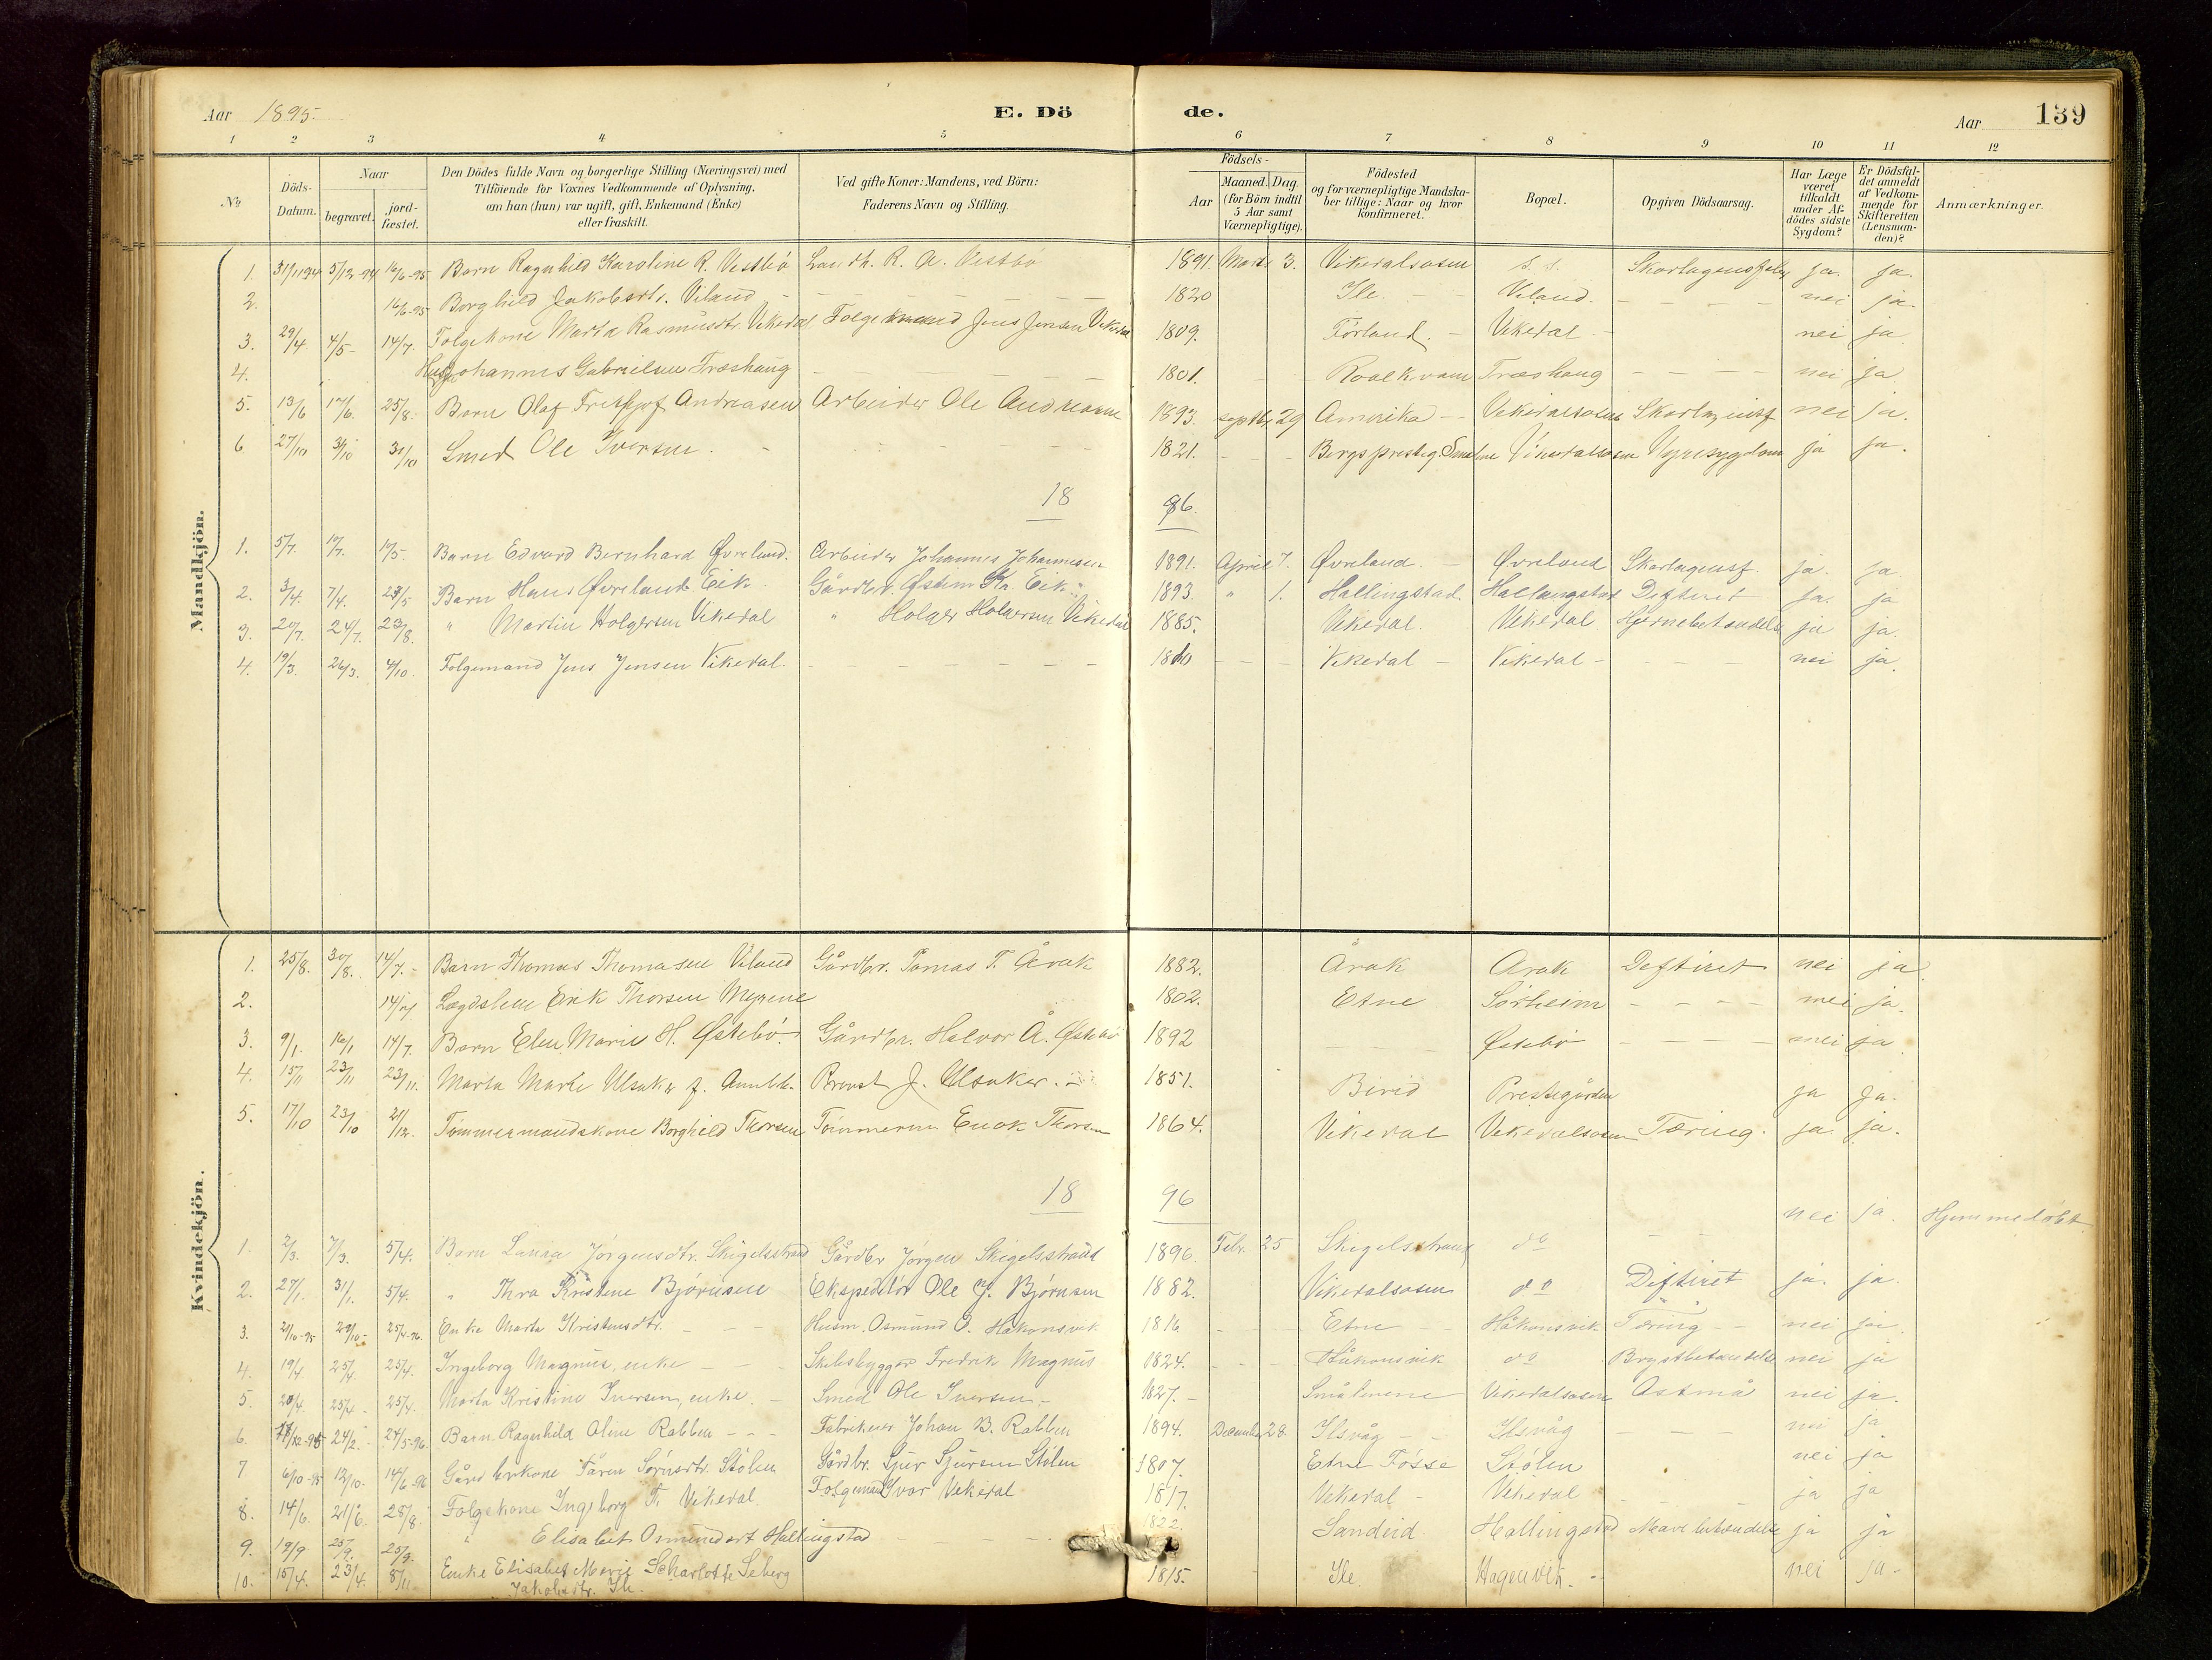 Aar 1895.
E. Dö de.
Aar
139
1 2 3 4 5 6 7 8 9 10 11 12
No
Döds-Datum.
Naar
begravet.
jord-fæstet.
Den Dödes fulde Navn og borgerlige Stilling (Næringsvei) med
Tilföiende for Voxnes Vedkommende af Oplysning,
om han (hun) var ugift, gift, Enkemand (Enke)
eller fraskilt.
Ved gifte Koner: Mandens, ved Börn:
Faderens Navn og Stilling.
Födsels-
Aar
Maaned. Dag.
(for Börn indtil
5 Aar samt
Værnepligtige).
Födested
og for værnepligtige Mandska-
ber tillige: Naar og hvor
konfirmeret.
Bopæl.
Opgiven Dödsaarsag.
Har Læge
været
tilkaldt
under Af-
dödes sidste
Sygdom?
Er Dödsfal-
det anmeldt
af Vedkom-
mende for
Skifteretten
(Lensman-
den)?
Anmærkninger.
Mandkjön.
1. 5/12-94 16/6-95 Barn Ragnhild Karoline R. Vestbö R. A. Vestbö 1891. Marts 3. Vikedalsosen ja. ja.
2. 16/6-95 Borghild Jakobsdtr. Viland 1820 Ile. Viland. nei ja.
3. 29/4 4/5 14/7. Folgekone Marta Rasmusdtr Vikedal Jens Jensen Vikedal 1809. Førland. Vikedal nei ja
4. Johannes Gabrielsen Træshaug 1801. Roalkvam Træshaug nei ja
5. 13/6 17/6. 25/8. Barn Olaf Fritjof Andreasen Arbeider Ole Andreasen 1893. septbr 29 Amerika Vikedalsosen Skarlaginsf nei ja.
6 27/10 31/10 31/10 Smed Ole Iversen. 1821. Vikedalsosen Nyresygdom ja ja.
18 96.
1. 5/7. 10/7. Barn Edvard Bernhard Øvreland. Arbeider Johannes Johannesen 1891. April 7. Øvreland. Øvreland Skarlaginsf. ja. ja.
2. 3/4. 7/4. 29/5 Barn Hans Øvreland Eik Gårdbr. Østen Kr. Eik 1893. " 1. Hallingstad. Hallingstad Diftirit ja. ja
3. 20/7. 24/7. 23/8. " Martin Holgersen Vikedal " Holger Holgersen Vikedal 1885. Vikedal. Vikedal Hjernebetændelse ja ja.
4. 19/3. 26/3. 4/10. Folgemand Jens Jensen Vikedal. 1810 Vikedal Vikedal nei ja.
Kvindekjön.
1. 25/8. 30/8. 14/7. Barn Thomas Thomasen Viland Gårdbr. Tomas T. Årak 1882. Årak Årak Diftirit nei ja
2. Lægdslem Erik Thorsen Myrene 1802. Etne Sörheim nei ja.
3. 9/1. 16/1 14/7. Barn Elen Marie H. Østebö. Gårdbr. Halvor Å. Østebö 1892 Østebö nei ja
4. 15/11 23/11 23/11. Marta Marie Ulsaker f. Provst J. Ulsaker. 1851. Birid Prestegården ja ja.
5. 17/10 23/10 21/12. Tömmermandskone Borghild Thorsen Tömmerm. Enok Thorsen 1864. Vikedal Vikedalsosen Tæring. ja ja.
18 96
1. 2/3. 7/3. 5/4. Barn Laura Jörgensdtr. Skigelsstrand Gårdbr Jörgen Skigelsstrand 1896. Febr. 25 Skigelsstrand do nei ja. Hjemmedöbt
2. 27/1. 31/1. 5/4. " Thra Kristine Björnsen Ekspeditör Ole G. Björnsen 1882. Vikedalsosen do Diftirit ja. ja.
3. 21/10-95 29/10- 25/4-96. Enke Marta Kristensdtr. Husm. Osmund O. Håkonsvik 1816 Etne Håkonsvik Tæring nei ja.
4. 19/4 25/4 25/4. Ingeborg Magnus, enke Skibsbygger Fredrik Magnus 1824. Håkonsvik do Brystbetændelse nei ja
5. 20/4. 25/4 25/4. Marta Kristine Iversen, enke. Smed Ole Iversen. 1827. Smålenene Vikedalsosen Astma nei ja.
6. 24/2. 24/5-96. Barn Ragnhild Oline Rabben Fabrikeier Johan B. Rabben 1894. December 28. Ilsvåg Ilsvåg nei ja
7 6/10-95 12/10. 14/6-96 Gårdbrkone Sörensdtr. Stölen Gårdbr. Sjur Sjursen Stölen 1807. Etne Fosse Stölen nei ja
8. 14/6. 21/6. 28/8. Folgekone Ingeborg T. Vikedal Folgemand Ivar Vikedal 1817. Vikedal Vikedal ja ja
9. 19/9. 25/9. 25/9. " Elisabet Osmundsdt Hallingstad 1822. Sandeid Hallingstad Mavebetændelse ja ja
10. 15/4. 23/4. 8/11 Enke Elisabet Marie Scharlotte Seberg
Jakobsdtr. Ile. 1815. Ile. Hagenvik. nei ja.